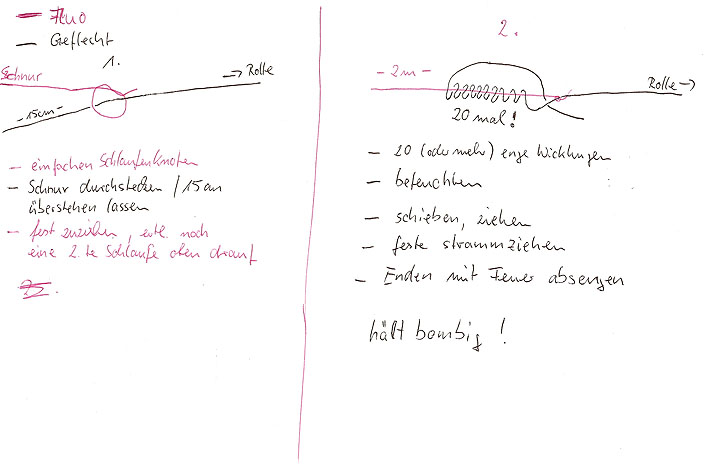 — Fluo
— Geflecht
1.
Schnur
→ Rolle
- 15cm -
- einfachen Schlaufenknoten
- Schnur durchstecken / 15cm
überstehen lassen
- fest zuziehen, evtl. noch
eine 2.te Schlaufe oben drauf
2.
- 2m -
Rolle →
20 mal!
- 20 (oder mehr) enge Wicklungen
- befeuchten
- schieben, ziehen
- feste strammziehen
- Enden mit Feuer absengen
hält bombig!